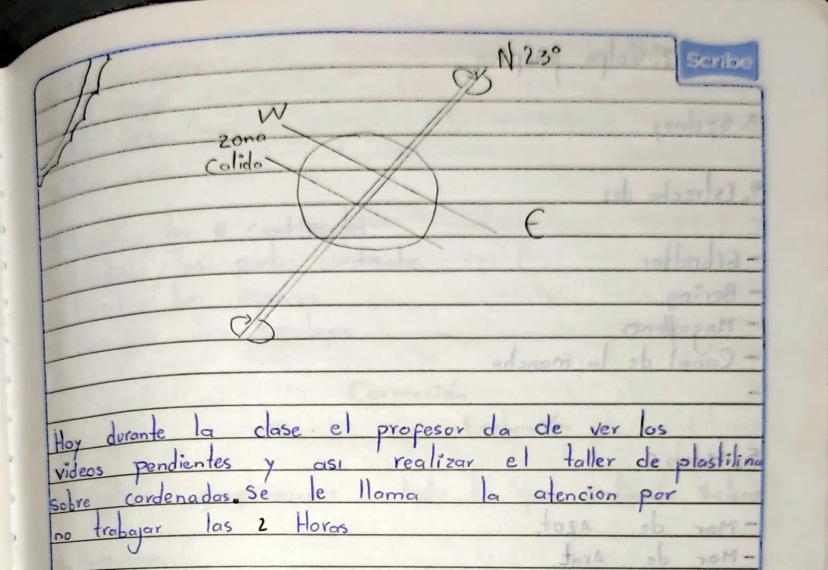 Scribe
N 23°
W
zona
Calida
E
Hoy durante la clase el profesor da de ver los
videos pendientes y asi realizar el taller de plastilina
sobre cordenadas. Se le llama la atencion por
no trabajar las 2 Horas